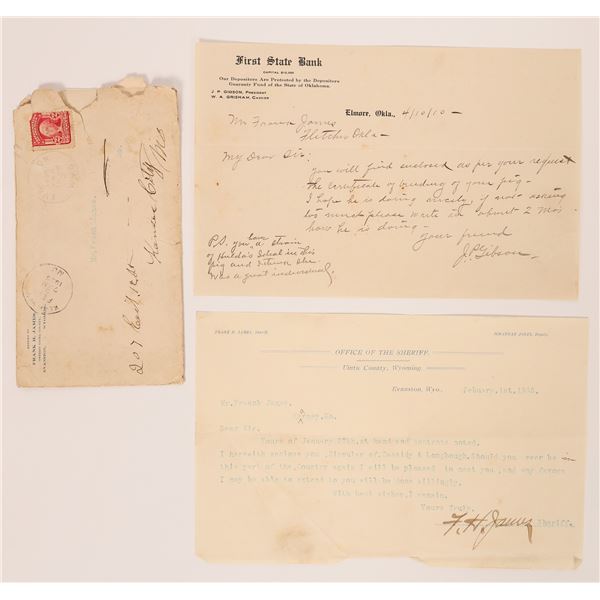 First State Bank
CAPITAL $10,000
Our Depositors Are Protected by the Depositors
Guaranty Fund of the State of Oklahoma.
J. P. GIBSON, PRESIDENT
W. A. GRISHAM, CASHIER
Elmore, Okla., 4/10/10 —
Mr Frank James
Fletcher Okla —
My Dear Sir:
You will find enclosed as per your request
the certificate of breeding of your pig —
I hope he is doing nicely, if not asking
too much please write me about 2 Mos
how he is doing —
Your friend
J.P. Gibson —
P.S. you have a strain
of Hulda's Ideal in this
pig and I know she
was a great individual,
Mr. Frank James,
207 East
Kansas City Mo
FRANK H. JAMES
EVANSTON, WYOMING
FRANK H. JAMES, Sheriff.
OFFICE OF THE SHERIFF.
Uinta County, Wyoming.
Evanston, Wyo., February, 1st, 1903.
Mr. Frank James.
Kearney, Mo.
Dear Sir.
Yours of January 27th, at hand and contents noted.
I herewith enclose you, Circular of, Cassidy & Longbough. Should you ever be in
this part of the, Country again I will be pleased to meet you, and any favors
I may be able to extend to you will be done willingly.
With best wishes, I remain.
Yours Truly.
F. H. James Sheriff.